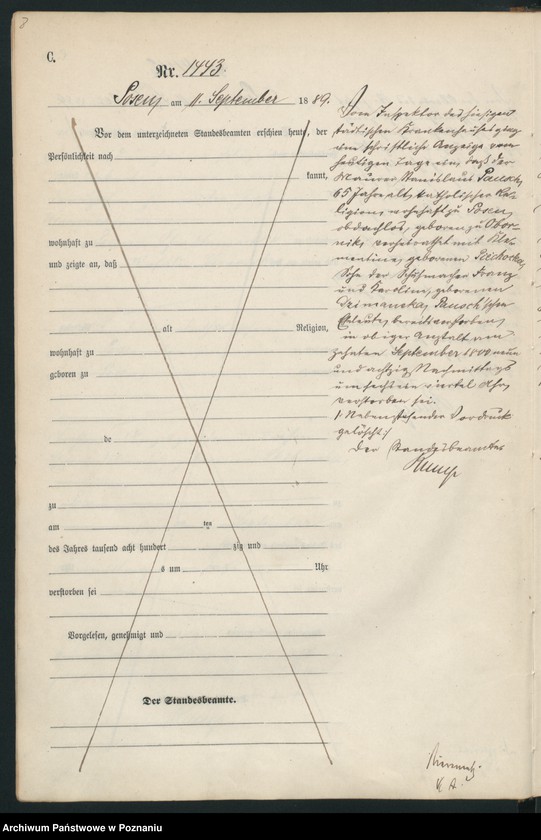 C.
Nr. 1443.
Posen am 11. September 1889.
Vor dem unterzeichneten Standesbeamten erschien heute, der
Persönlichkeit nach
kannt,
wohnhaft zu
und zeigte an, daß
alt Religion,
wohnhaft zu
geboren zu
de
zu
am ten
des Jahres tausend acht hundert zig und
s um Uhr
verstorben sei
Vorgelesen, genehmigt und
Der Standesbeamte.
Vom Inspektor des hiesigen
städtischen Krankenhauses ging
eine schriftliche Anzeige vom
heutigen Tage ein, daß der
Maurer Stanislaus Pausch,
65 Jahre alt, katholischer Re-
ligion, wohnhaft zu Posen,
obdachlos, geboren zu Obor-
nik, verheirathet mit Kle-
mentine, geborenen Piechocka,
Sohn der Schuhmacher Franz
und Karoline, geborenen
Pausch'schen
Eheleute, bereits verstorben,
in obiger Anstalt am
zehnten September 1800 neun
und achtzig Nachmittags
um sechs ein viertel Uhr
verstorben sei.
/: Nebenstehender Vordruck
gelöscht :/
Der Standesbeamte
Archiwum Państwowe w Poznaniu